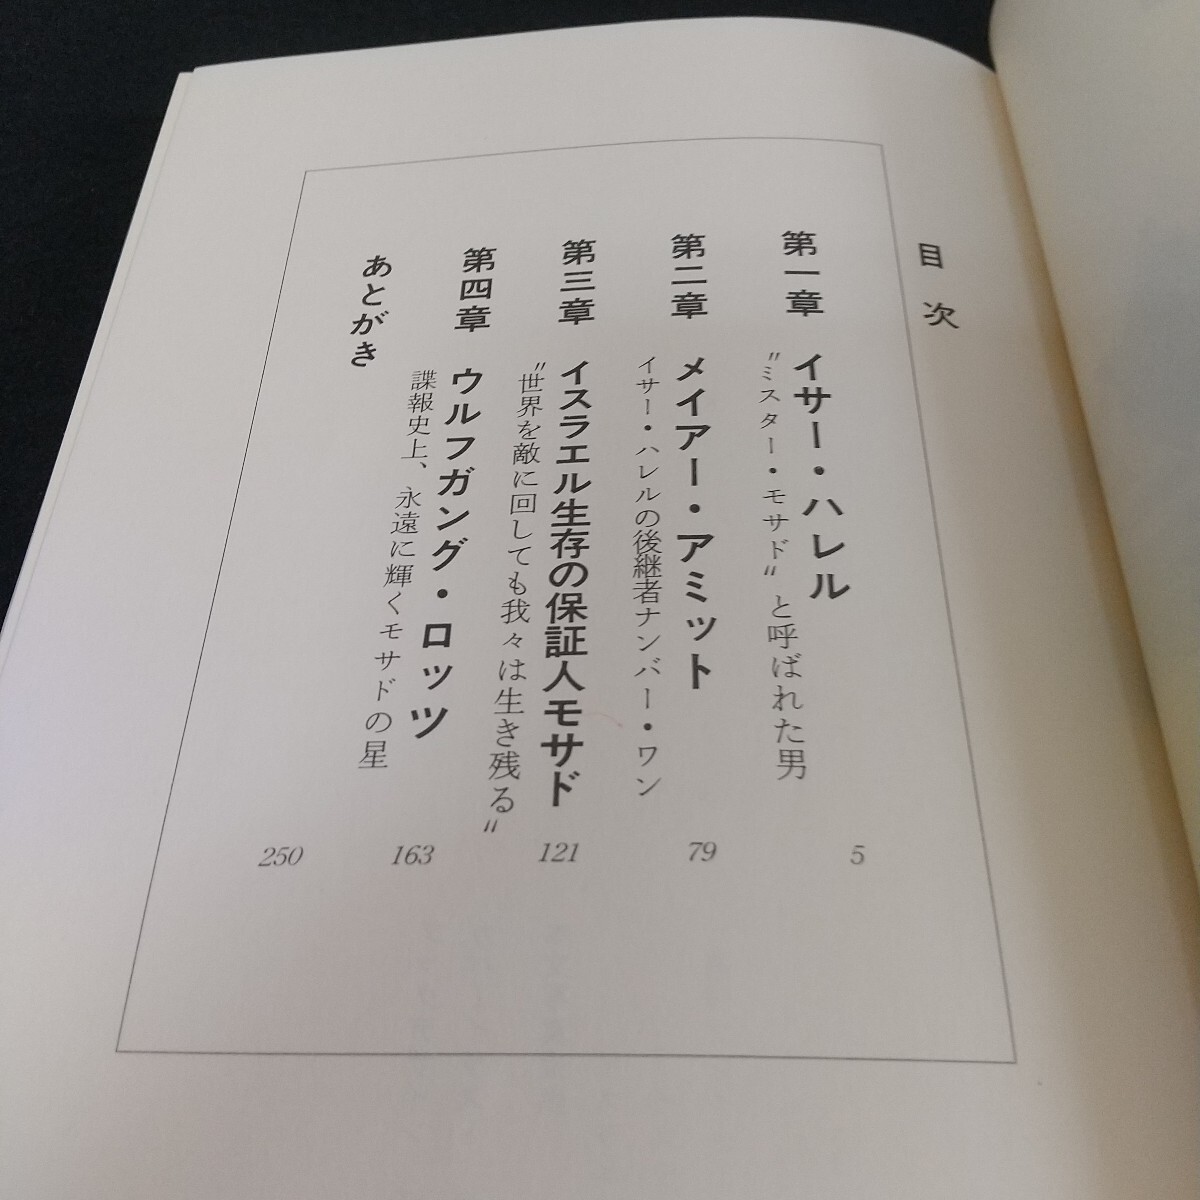 目次
第一章 イサー・ハレル
〝ミスター・モサド〟と呼ばれた男
5
第二章 メイアー・アミット
イサー・ハレルの後継者ナンバー・ワン
79
第三章 イスラエル生存の保証人モサド
〝世界を敵に回しても我々は生き残る〟
121
第四章 ウルフガング・ロッツ
諜報史上、永遠に輝くモサドの星
163
あとがき
250